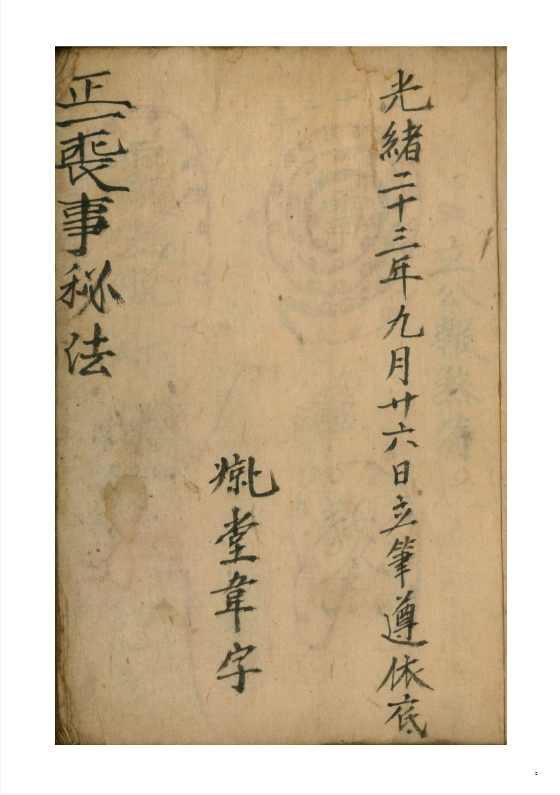 光緒二十三年九月廿六日立筆遵依底
堂韋字
正一喪事秘法